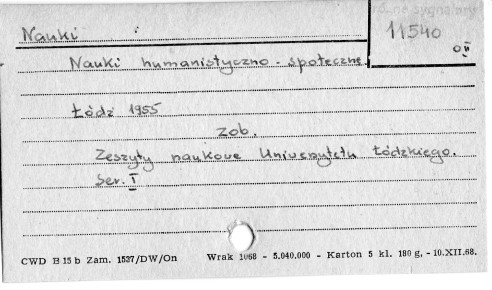 Nauki
11540
Nauki humanistyczno - społeczne.
Łódź 1955
zob.
Zeszyty naukowe Uniwersytetu Łódzkiego.
Ser. I
CWD B 15 b Zam. 1537/DW/On Wrak 1068 - 5.040.000 - Karton 5 kl. 180 g, - 10.XII.68.